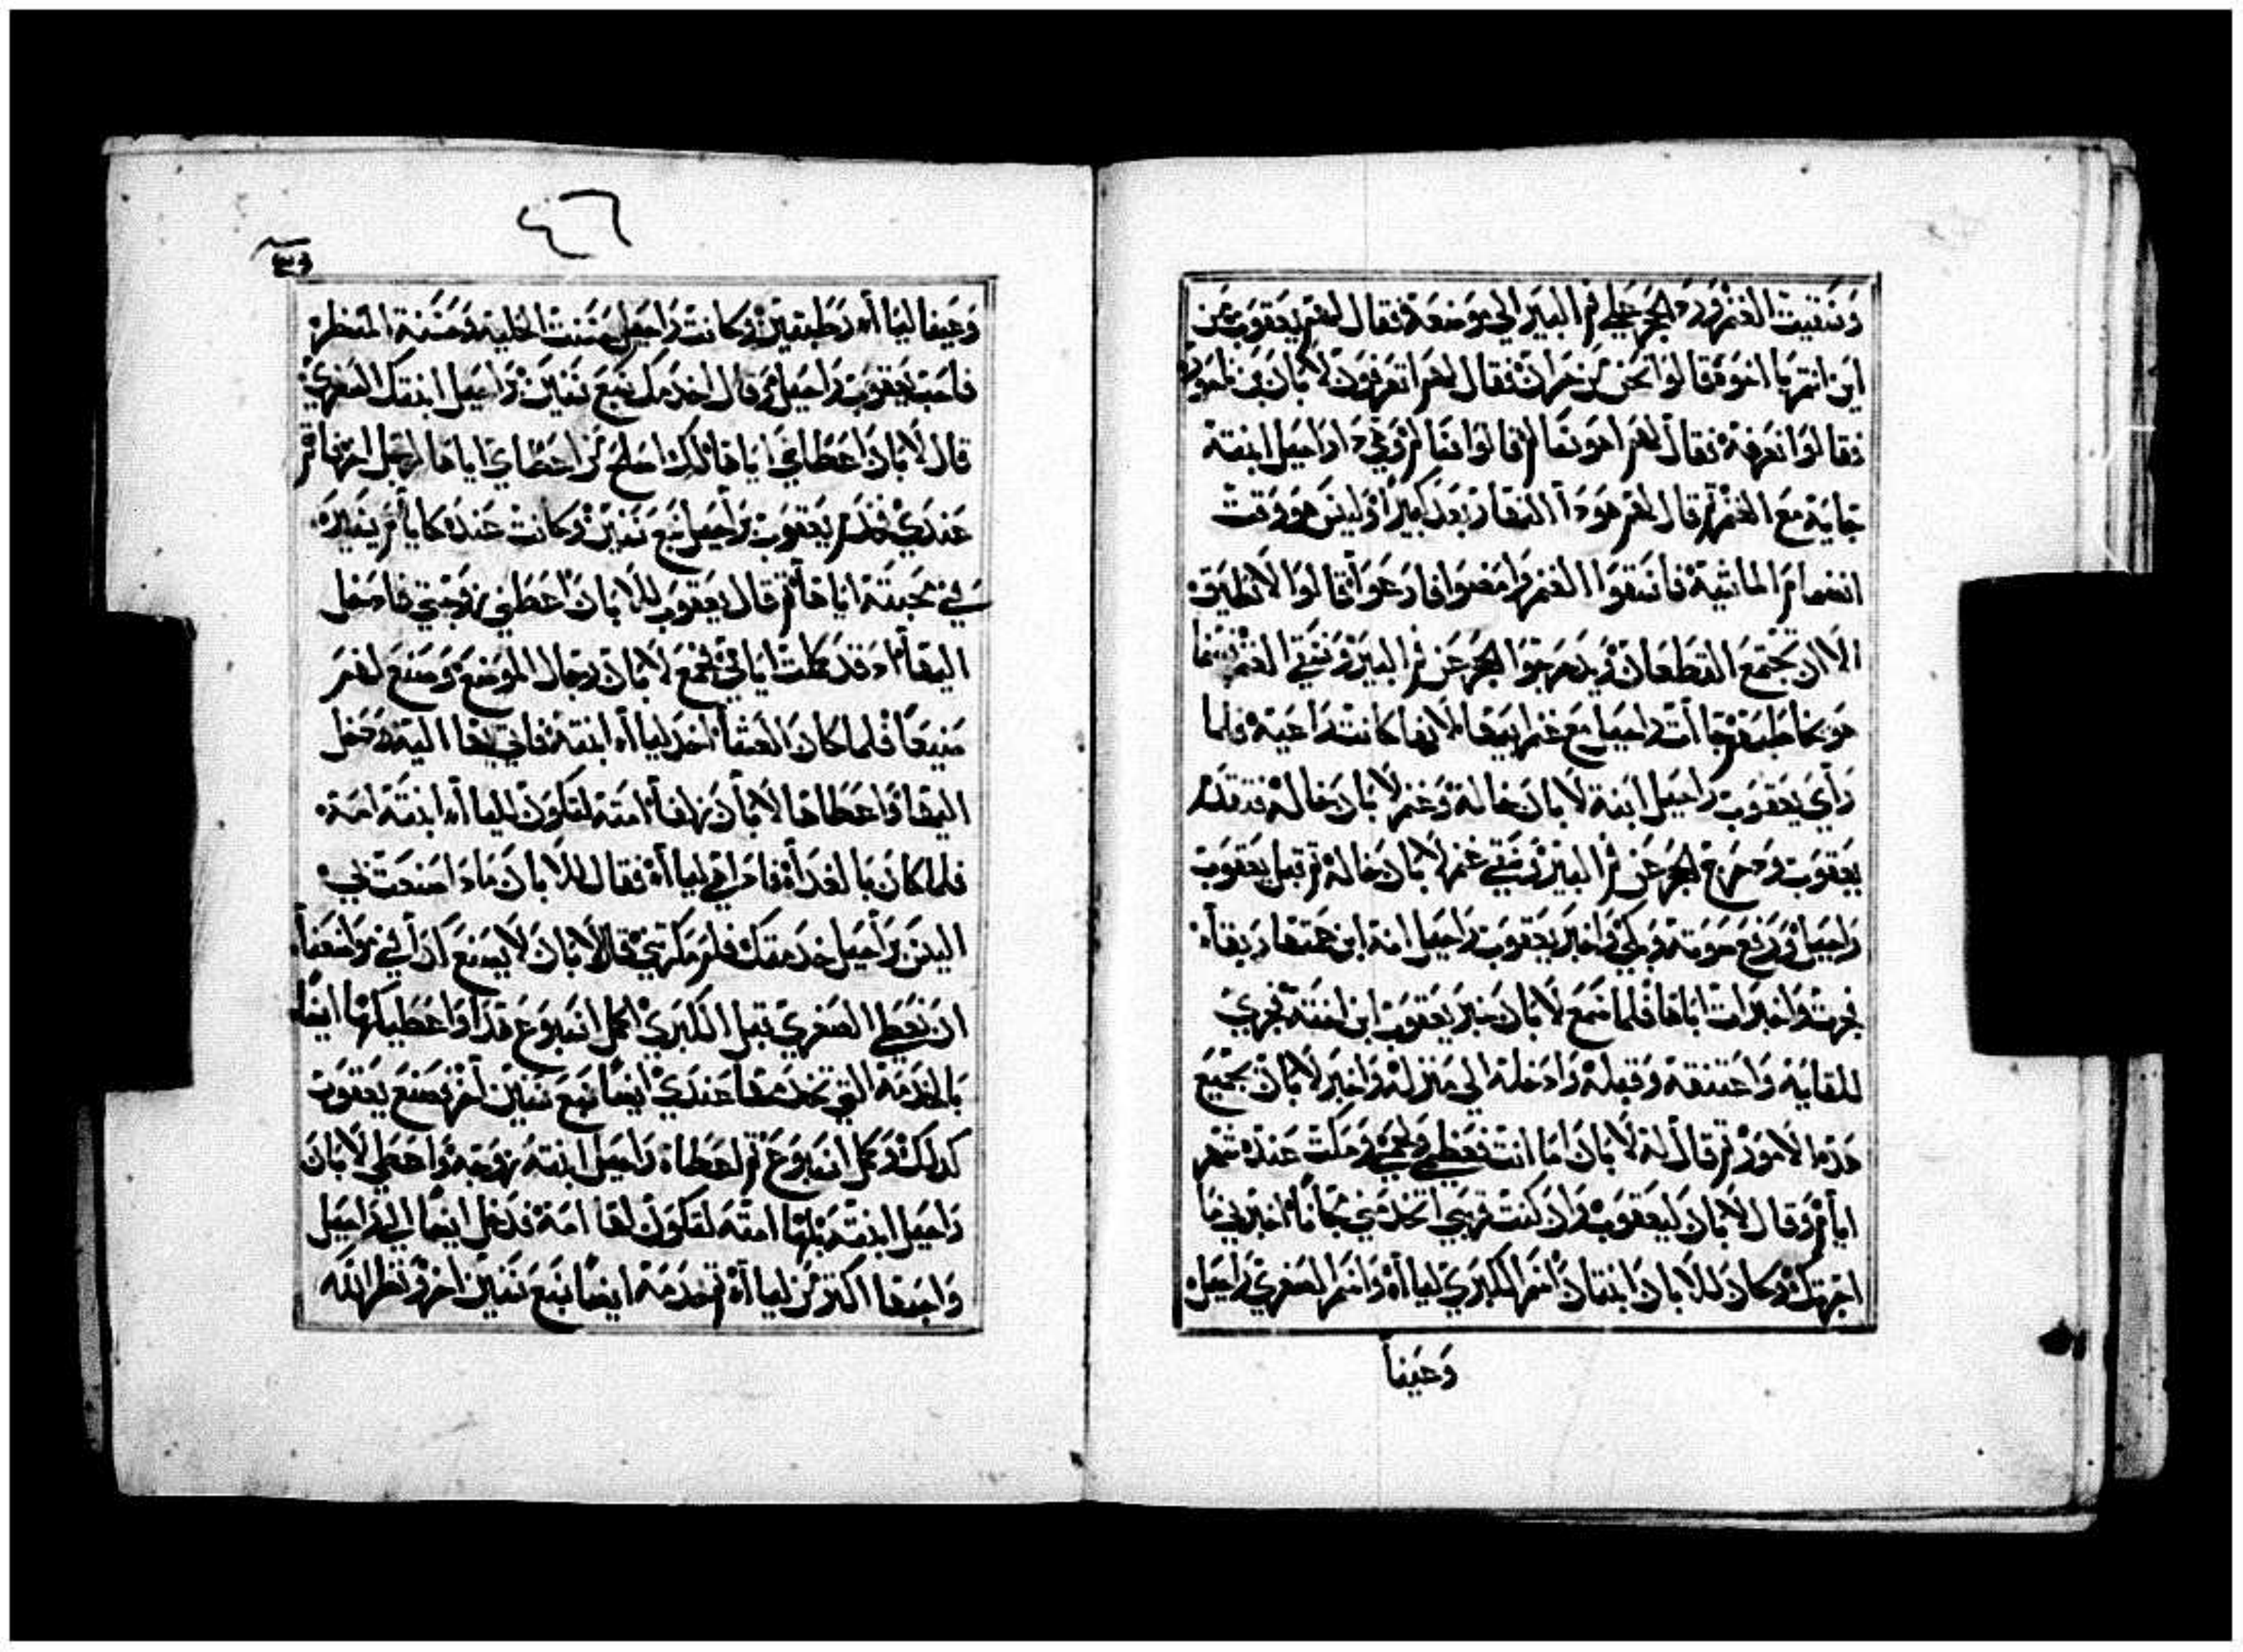 وسقيت الغنم ورد الحجر علي فم البير الي موضعه فقال لهم يعقوب من
اين انتم يا اخوة قالوا نحن من حران فقال لهم اتعرفون لابان بن ناحور
فقالوا نعرفه فقال لهم اهو سالم قالوا سالم وهي ذا راحيل ابنته
جايه مع الغنم ثم قال لهم هوذا النهار بعد كبيرا وليس هو وقت
انضمام الماشية فاسقوا الغنم وامضوا فارعوا قالوا لا نطيق
الا ان تجتمع القطعان ويدحرجوا الحجر عن فم البير ونسقي الغنم بينما
هو يخاطبهم جاات راحيل مع غنم ابيها لانها كانت راعية فلما
راي يعقوب راحيل ابنة لابان خاله وغنم لابان خاله فتقدم
يعقوب ودحرج الحجر عن فم البير وسقي غنم لابان خاله ثم قبل يعقوب
راحيل ورفع صوته وبكي واخبر يعقوب راحيل انه ابن عمتها ربقا
فجرت واخبرات اباها فلما سمع لابان خبر يعقوب ابن اخته فجري
للقايه واعتنقه وقبله وادخله الي منزله واخبر لابان بجميع
هذه الامور ثم قال له لابان اما انت فعظمي ولحمي ومكت عنده شهر
ايام وقال لابان ليعقوب وان كنت قريبي اتخدمني مجانا اخبرني ما
اجرتك وكان للابان ابنتان اسم الكبري ليااه واسم الصغري راحيل
وعينا
٤٦
وعينا ليااه رطبتين وكانت راحيل حسنت الحلية وحسنة المنظر
فاحب يعقوب راحيل وقال اخدمك سبع سنين براحيل ابنتك الصغري
قال لابان اعطاي اياها لك اصلح من اعطاي اياها لرجل اخر فاقم
عندي فخدم يعقوب براحيل سبع سنين وكانت عنده كايام يسيره
في محبته اياها ثم قال يعقوب للابان اعطني زوجتي فادخل
اليها اد قد كملت ايامي فجمع لابان رجال الموضع وصنع لهم
صنيعا فلما كان العشا اخد ليااه ابنته فاتي بها اليه ودخل
اليها واعطاها لابان زلفا امته لتكون لليااه ابنته امه
فلما كان بالغداه فاذا هي ليااه فقال للابان ماذا صنعت بي
اليس براحيل خدمتك فلم مكرتي قال لابان لا يصنع كذا في موضعنا
ان نعطي الصغري قبل الكبري اكمل اسبوع هذا واعطيكها ايضا
بالخدمة التي تخدمها عندي ايضا سبع سنين اخر فصنع يعقوب
كدلك وكمل اسبوع ثم اعطاه راحيل ابنته زوجه واعطي لابان
راحيل ابنته بلها امته لتكون لها امة فدخل ايضا الي راحيل
واحبها اكتر من ليااه ثم خدمه ايضا سبع سنين اخر ونظر الله